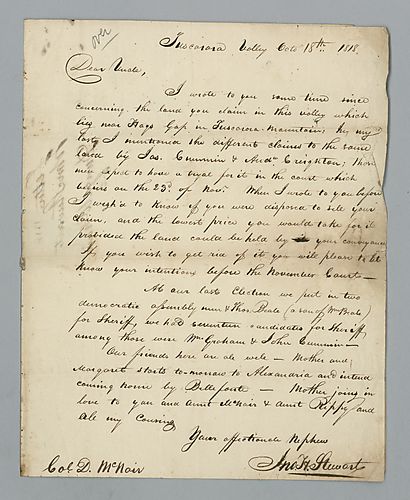 over
Tuscarora Valley Octo 18th. 1818.
Dear Uncle,
I wrote to you some time since
concerning the land you claim in this valley which
lies near Hags Gap in Tuscarora Mountain; In my
last I mentioned the different claims to the same
land by Jas. Cummin & And. Creighton; those
men expect to have a trial for it in the court which
begins on the 23d. of Novr. When I wrote to you before
I wish'd to know if you were disposed to sell your
claim, and the lowest price you would take for it
provided the land could be held by your conveyance
If you wish to get rid of it you will please to let
know your intentions before the November Court—
At our last Election we put in two
democratic assembly men & Thos. Beale (a son of Wm Beale)
for Sheriff, we had seventeen candidates for Sheriff,
among those were Wm Graham & John Cummin—
Our friends here are all well — Mother and
Margaret starts to-morrow to Alexandria and intend
coming home by Bellefonte — Mother joins in
love to you and aunt McNair & aunt Rippy and
all my Cousins
Your affectionate Nephew
Jno. H. Stewart
Col. D. McNair